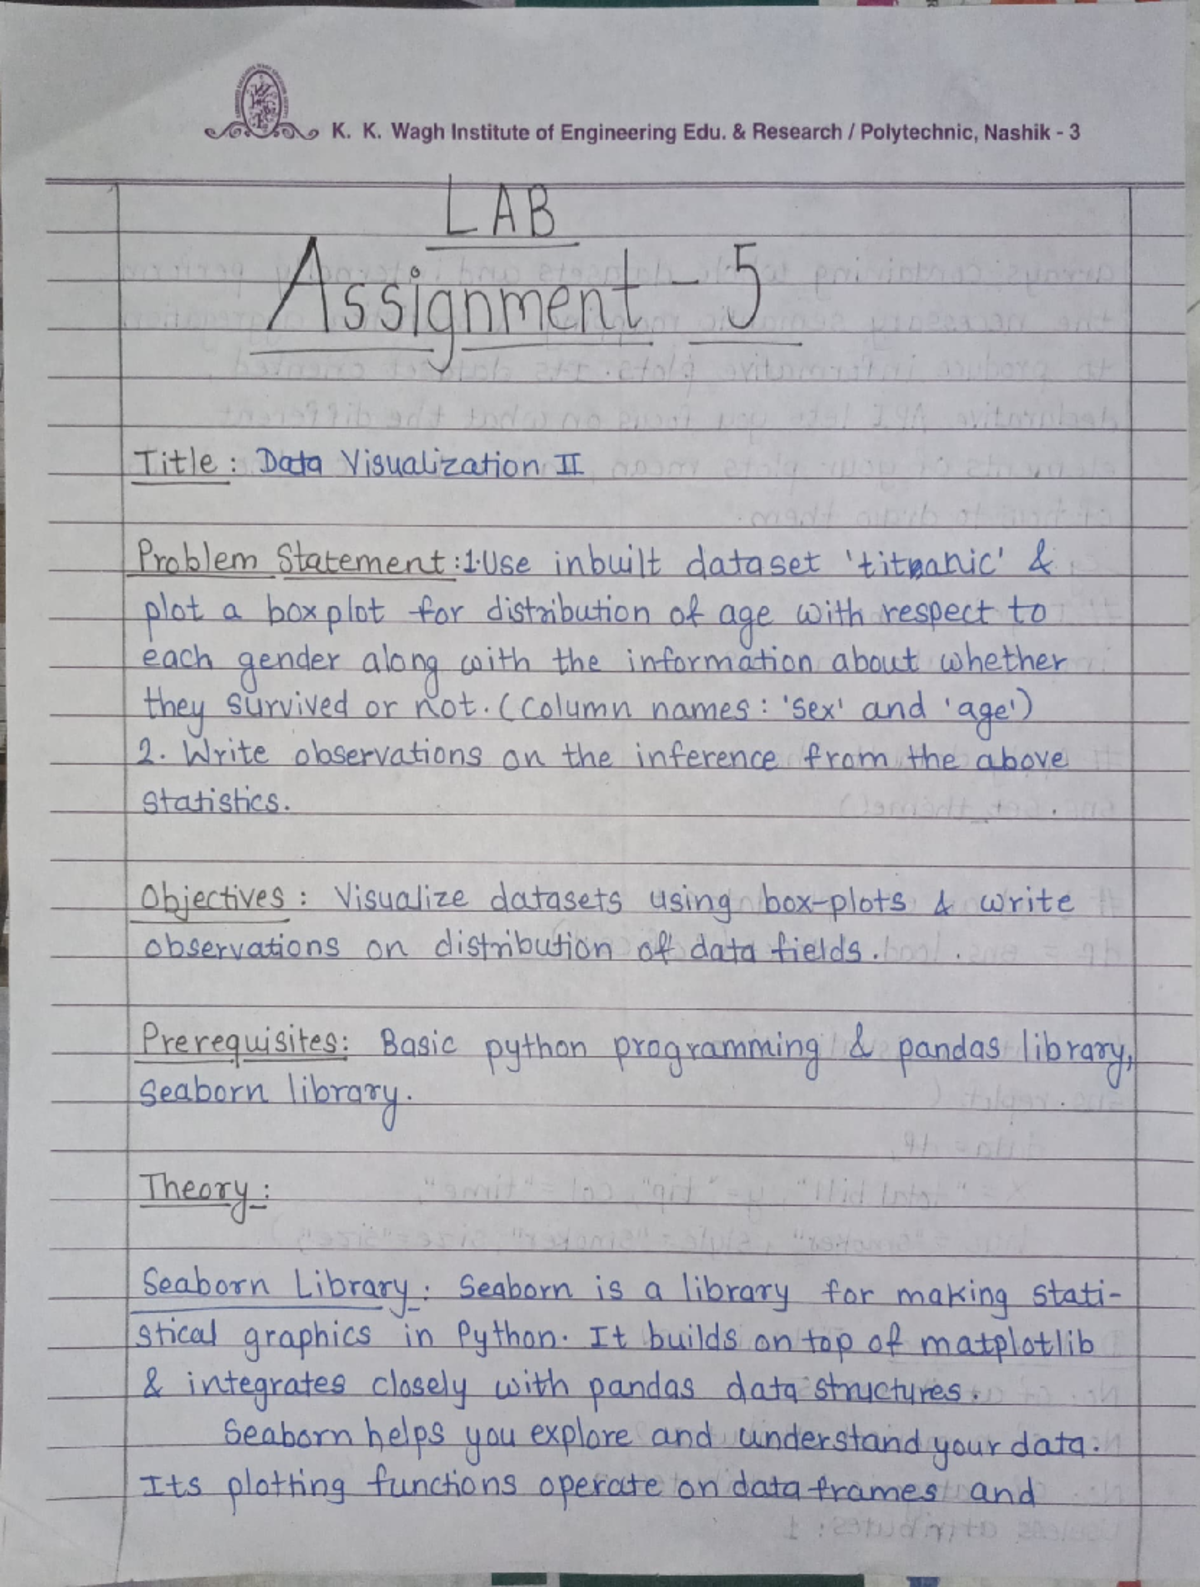 K. K. Wagh Institute of Engineering Edu. & Research / Polytechnic, Nashik - 3
LAB
Assignment - 5
Title : Data Visualization II
Problem Statement : 1. Use inbuilt dataset 'titanic' &
plot a box plot for distribution of age with respect to
each gender along with the information about whether
they survived or not. (Column names : 'sex' and 'age')
2. Write observations on the inference from the above
statistics.
Objectives : Visualize datasets using box-plots & write
observations on distribution of data fields.
Prerequisites: Basic python programming & pandas library,
Seaborn library.
Theory :
Seaborn Library : Seaborn is a library for making stati-
stical graphics in Python. It builds on top of matplotlib
& integrates closely with pandas data structures.
Seaborn helps you explore and understand your data.
Its plotting functions operate on data frames and